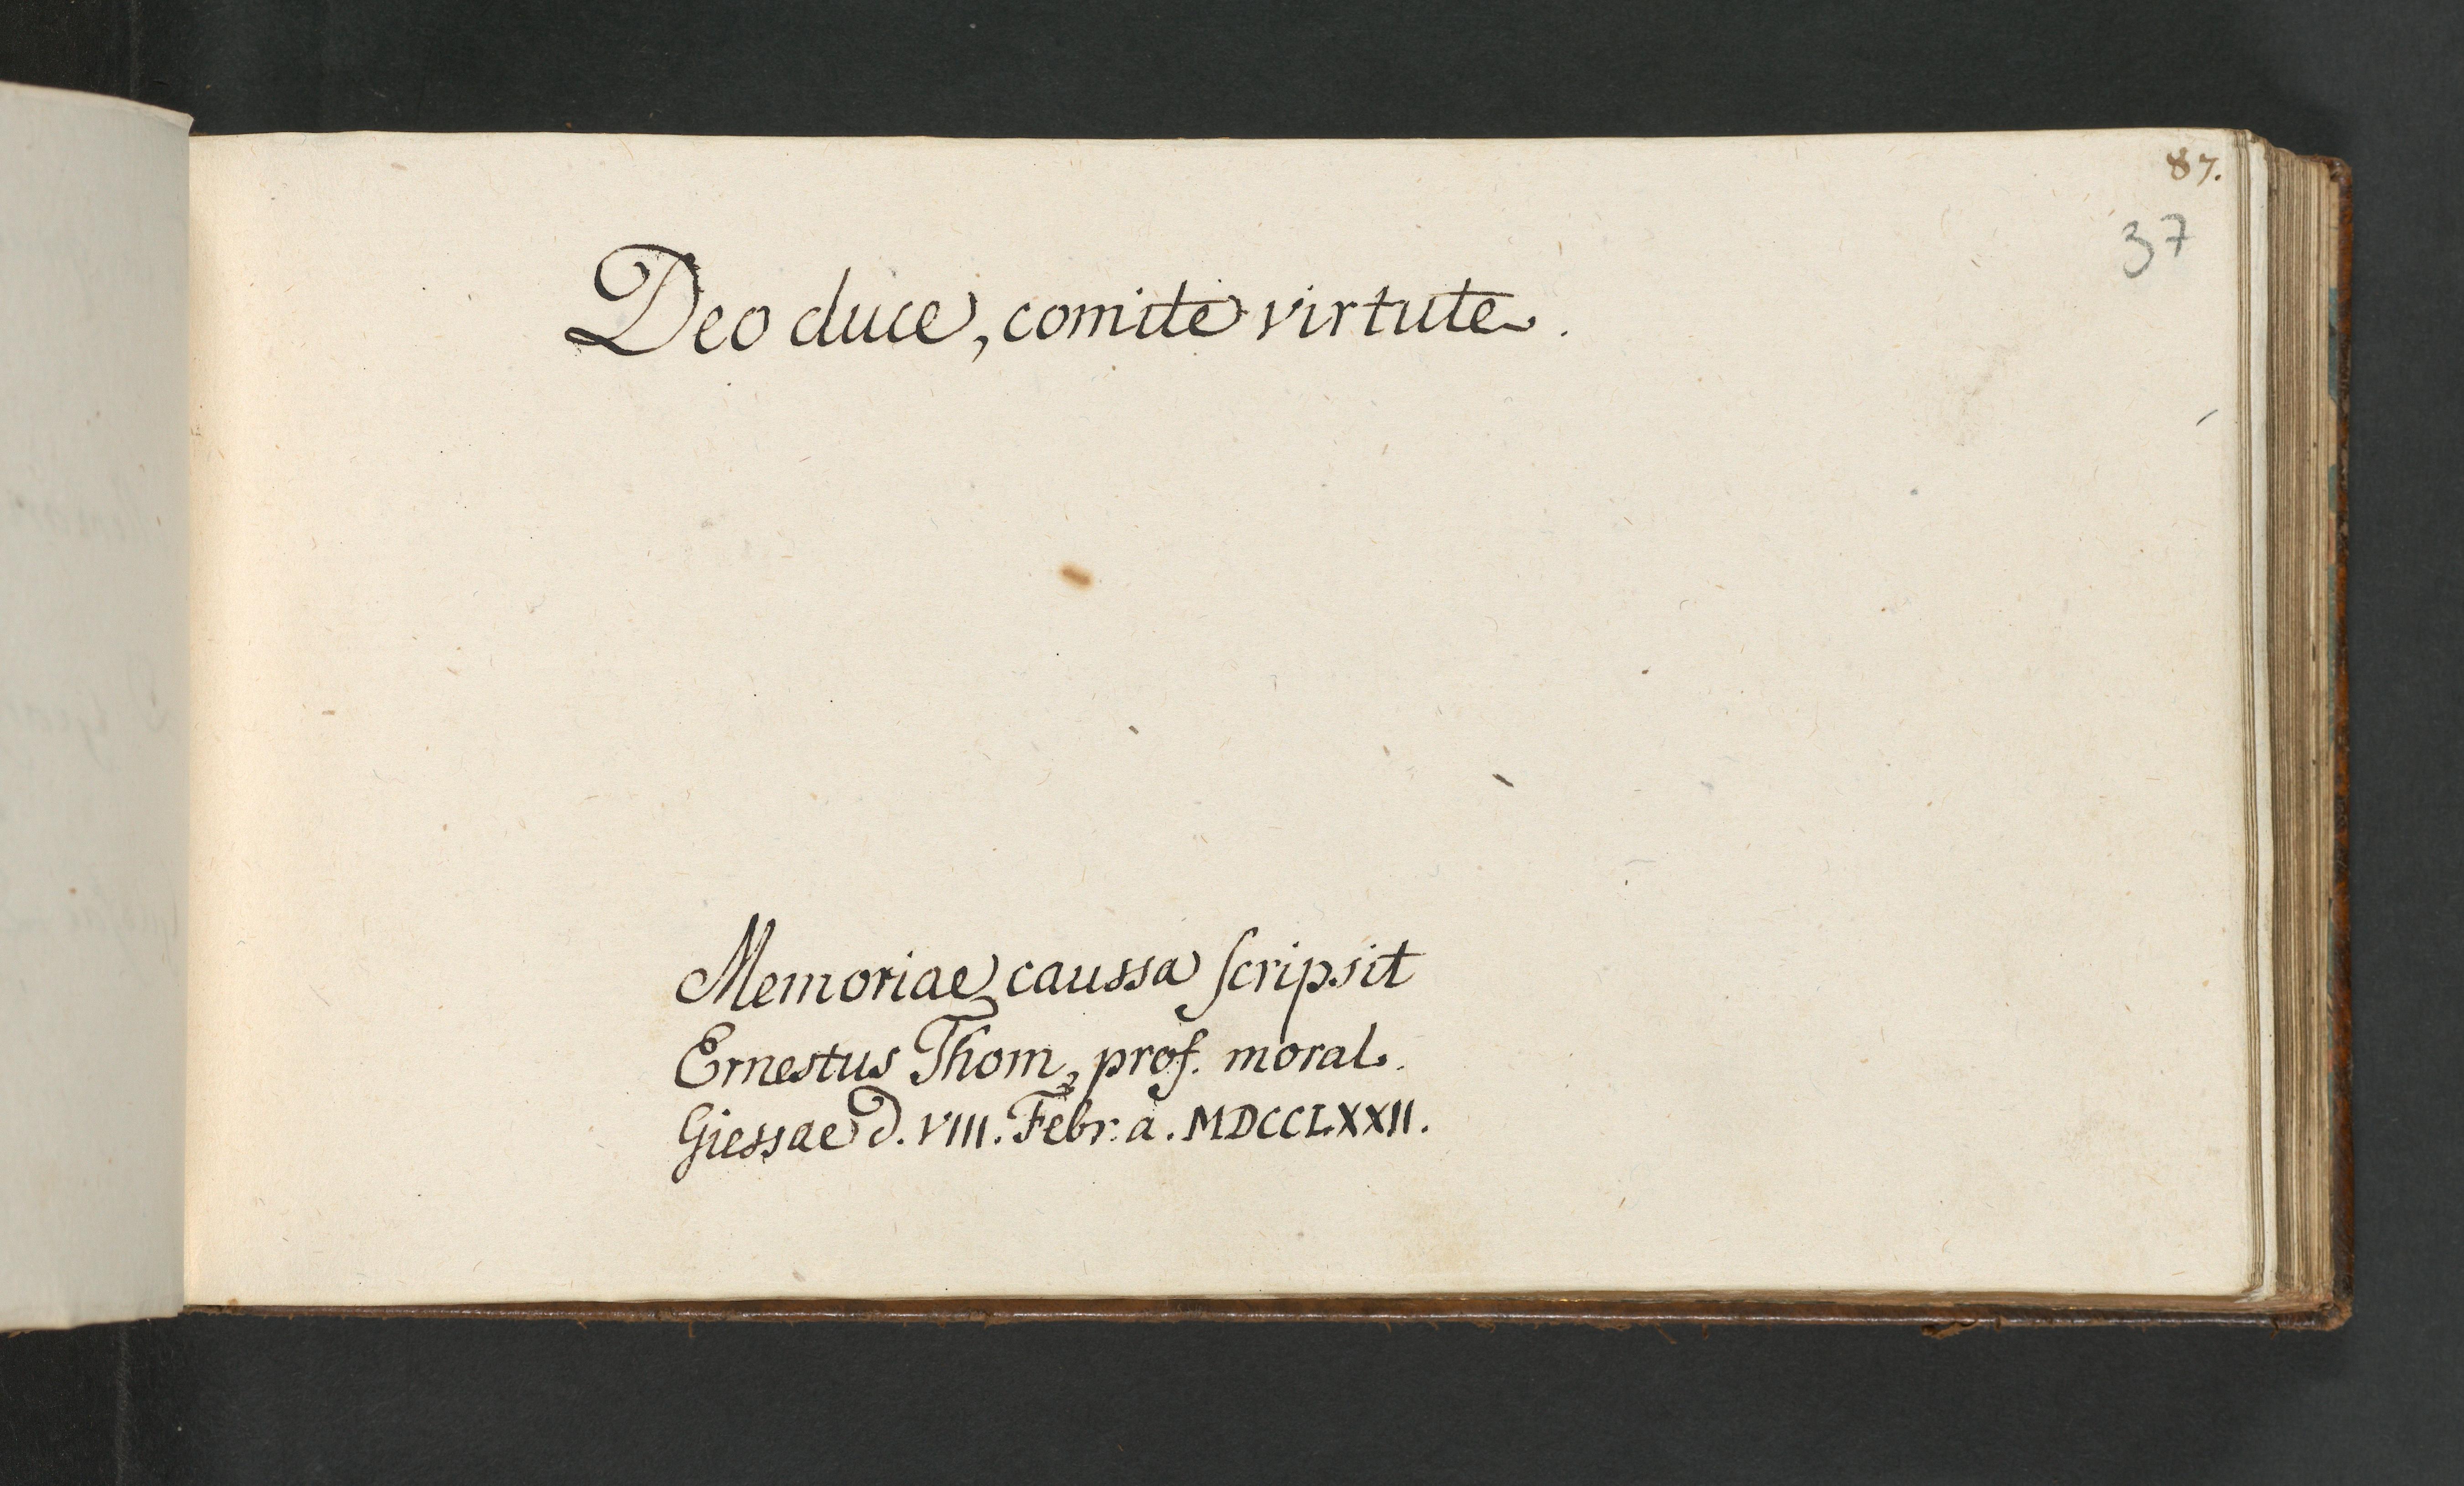 87.
37
Deo duce, comite virtute.
Memoriae caussa ſcripsit
Ernestus Thom, prof. moral.
Giessae d. VIII. Febr. a. MDCCLXXII.